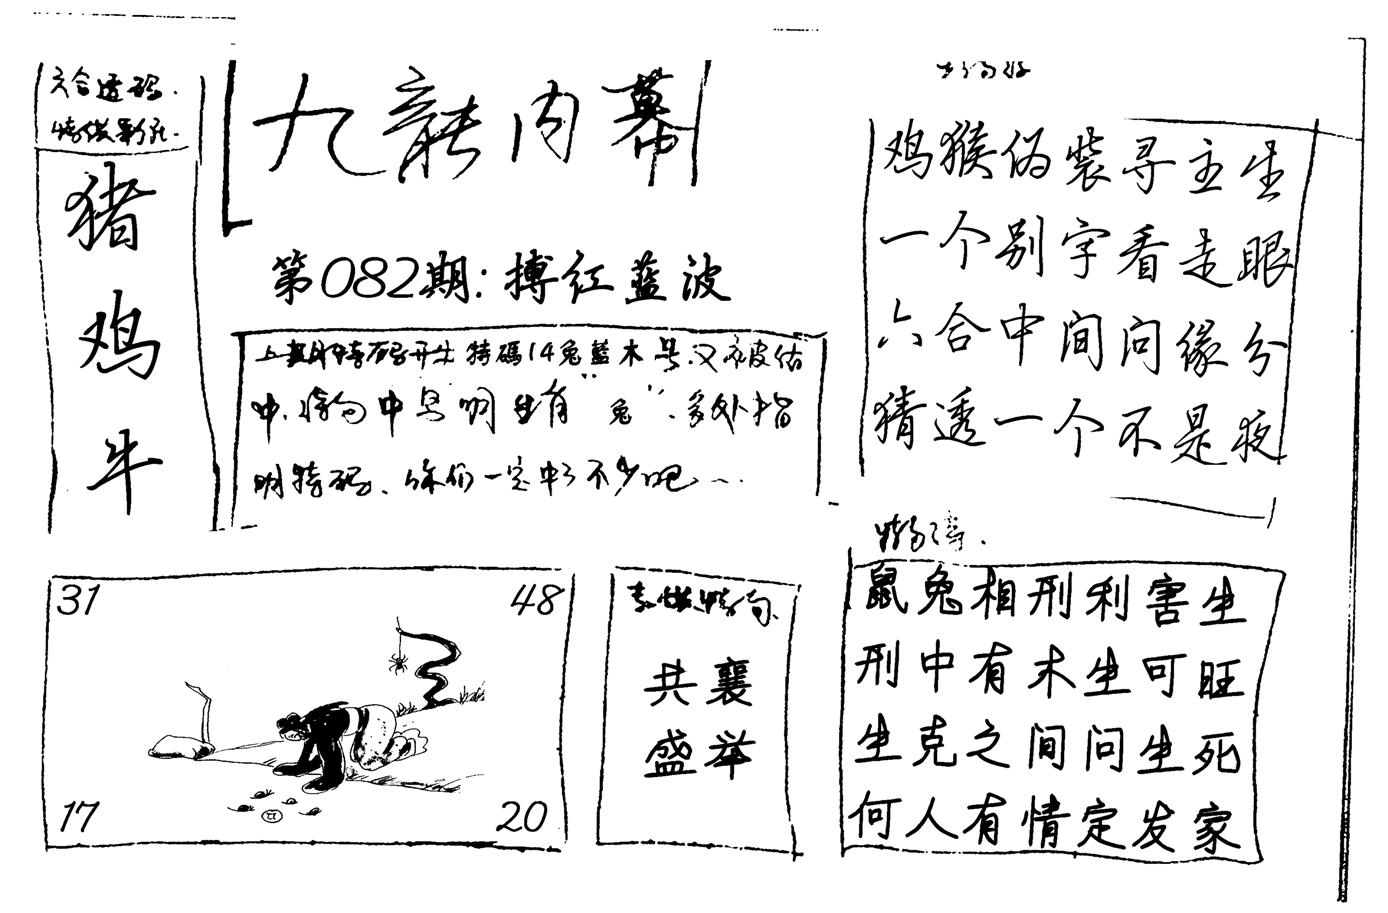 六合透码.
猪
鸡
牛
九龍内幕
第082期:搏红蓝波
特碼14兔藍木
中,特句中已明生有“兔”,多处指
明特码、你们一定中了不少吧…
鸡猴伪装寻主生
一个别字看走眼
六合中间问缘分
猜透一个不是夜
31
48
17
20
特句
共襄
盛举
鼠兔相刑利害生
刑中有木生可旺
生克之间问生死
何人有情定发家